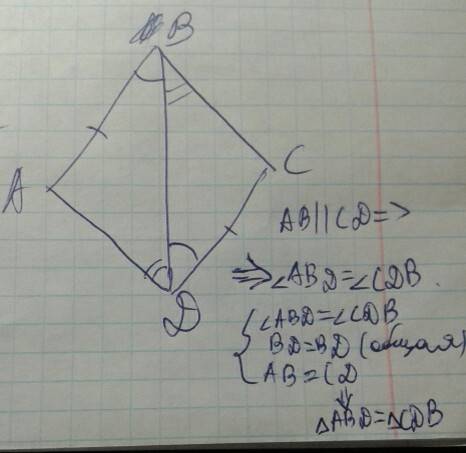 B
A
C
D
AB||CD=>
=>∠ABD=∠CDB.
{∠ABD=∠CDB
BD=BD (общая)
AB=CD
⇓
△ABD=△CDB